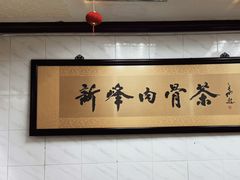 新峰肉骨茶